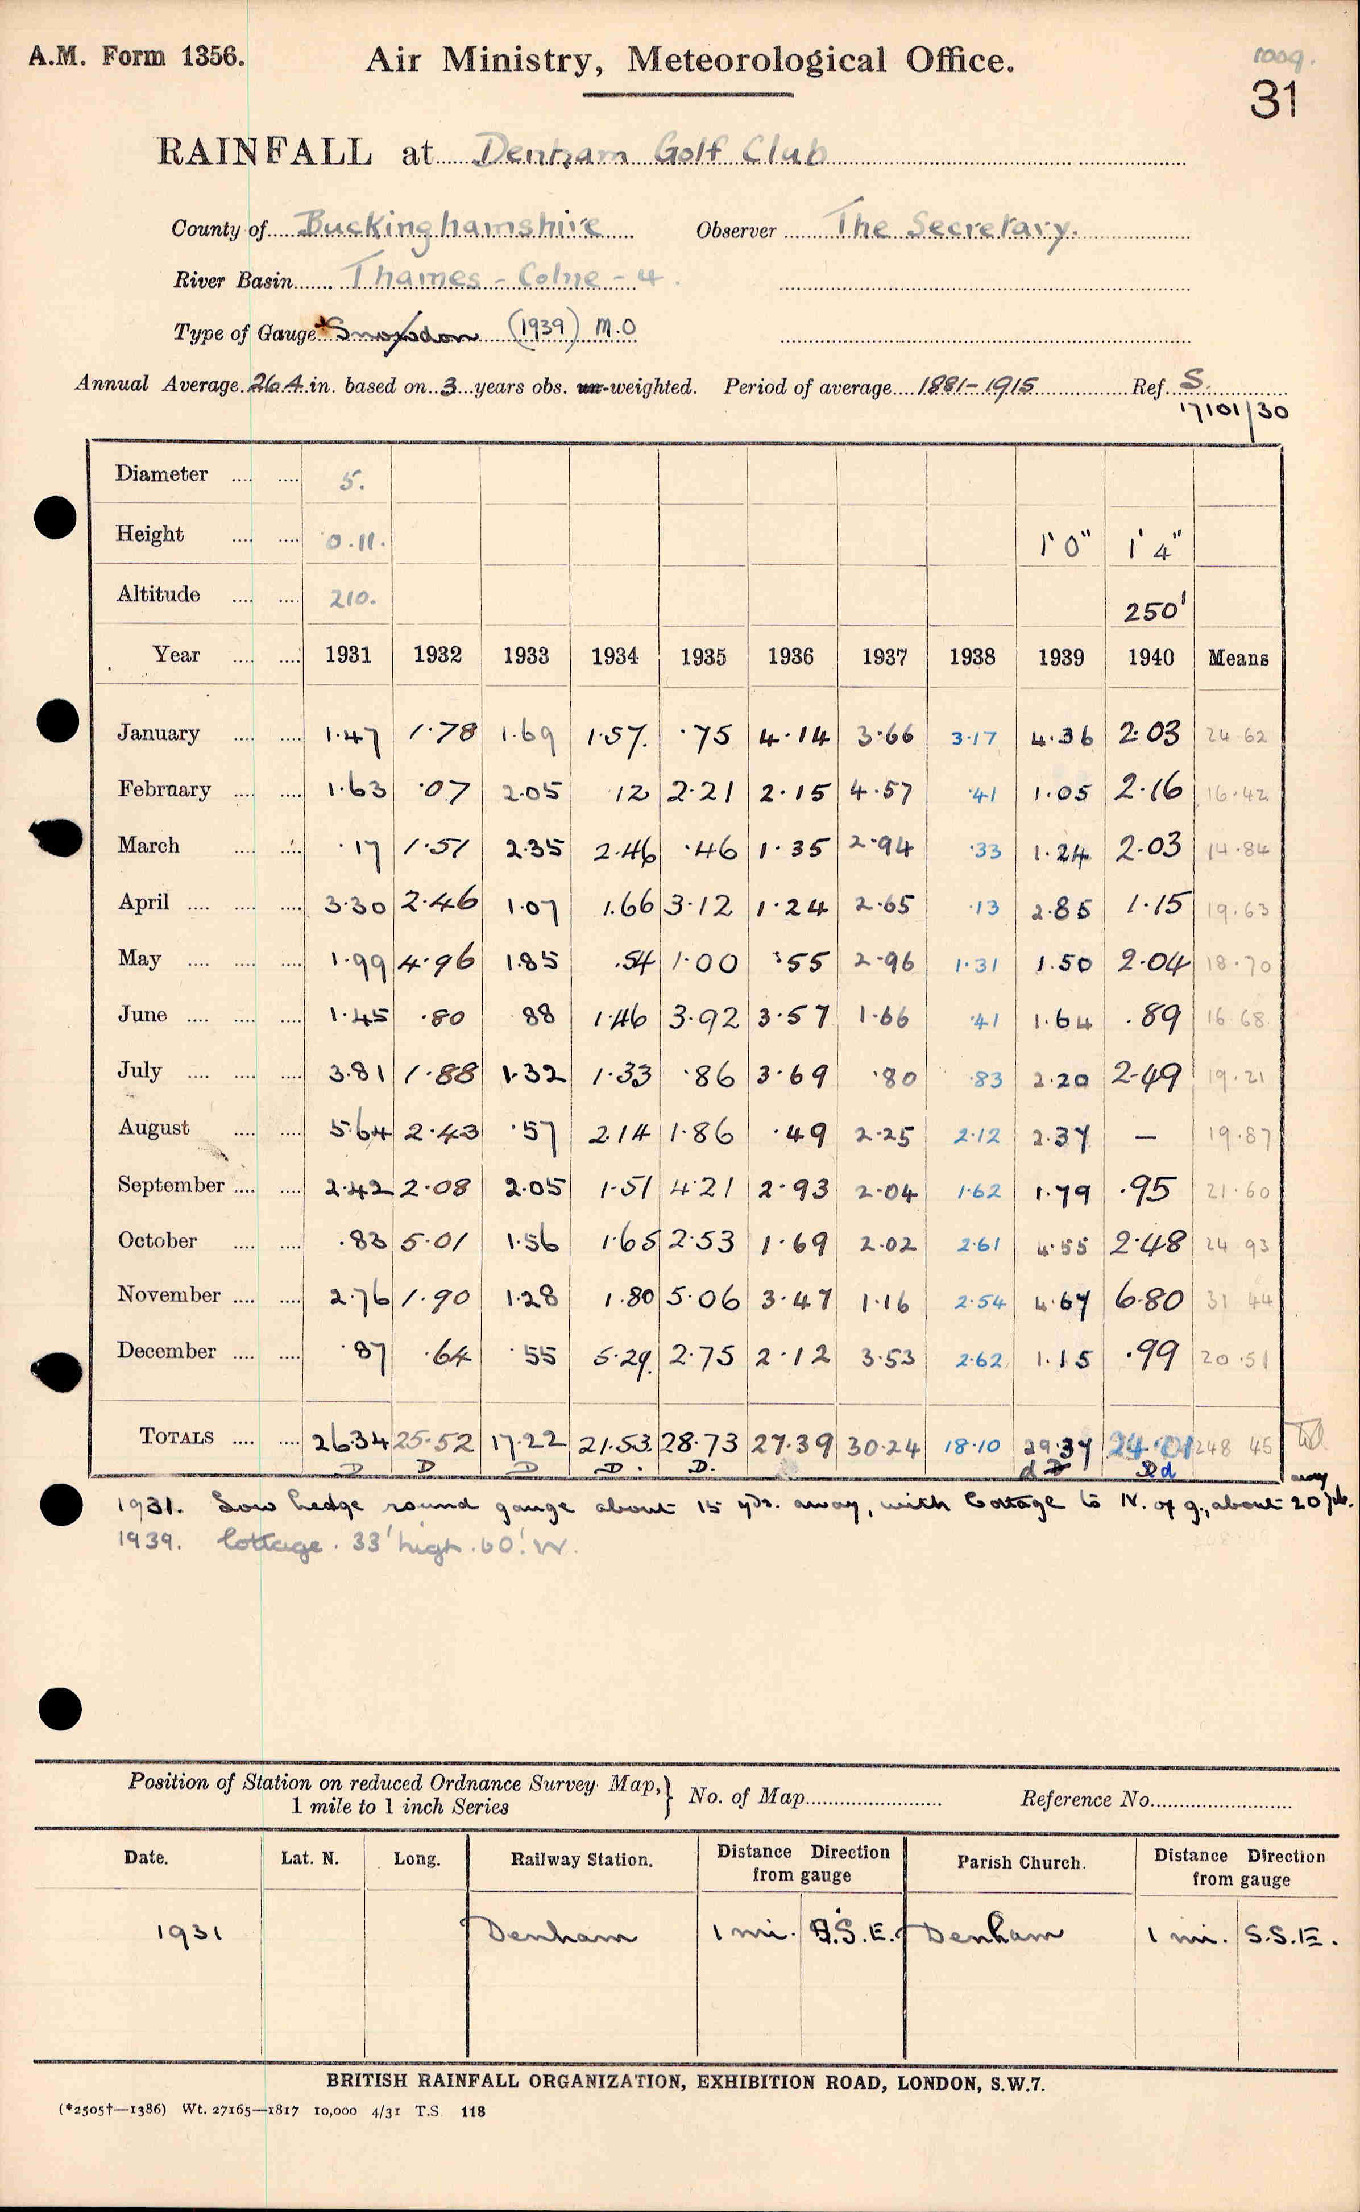 A.M. Form 1356.
Air Ministry, Meteorological Office.
1009.
31
RAINFALL at Denham Golf Club
County of Buckinghamshire Observer The Secretary.
River Basin Thames - Colne - 4.
Type of Gauge Snowdon (1939) M.O
Annual Average 26.4 in. based on 3 years obs. un-weighted. Period of average 1881-1915 Ref. S.
17101/30
Diameter 5.
Height 0.11. 1' 0" 1' 4"
Altitude 210. 250'
Year 1931 1932 1933 1934 1935 1936 1937 1938 1939 1940 Means
January 1.47 1.78 1.69 1.57 .75 4.14 3.66 3.17 4.36 2.03 24.62
February 1.63 .07 2.05 .12 2.21 2.15 4.57 .41 1.05 2.16 16.42
March .17 1.51 2.35 2.46 .46 1.35 2.94 .33 1.24 2.03 14.84
April 3.30 2.46 1.07 1.66 3.12 1.24 2.65 .13 2.85 1.15 19.63
May 1.99 4.96 1.85 .54 1.00 .55 2.96 1.31 1.50 2.04 18.70
June 1.45 .80 .88 1.46 3.92 3.57 1.66 .41 1.64 .89 16.68
July 3.81 1.88 1.32 1.33 .86 3.69 .80 .83 2.20 2.49 19.21
August 5.64 2.43 .57 2.14 1.86 .49 2.25 2.12 2.37 — 19.87
September 2.42 2.08 2.05 1.51 4.21 2.93 2.04 1.62 1.79 .95 21.60
October .83 5.01 1.56 1.65 2.53 1.69 2.02 2.61 4.55 2.48 24.93
November 2.76 1.90 1.28 1.80 5.06 3.47 1.16 2.54 4.67 6.80 31.44
December .87 .64 .55 5.29 2.75 2.12 3.53 2.62 1.15 .99 20.51
TOTALS 26.34 25.52 17.22 21.53 28.73 27.39 30.24 18.10 29.37 24.01 248.45
D D D D. D. d D Dd
1931. Low hedge round gauge about 15 yds. away, with Cottage to N. of g., about 20 yds. away
1939. Cottage. 33' high. 60' W.
Position of Station on reduced Ordnance Survey Map, 1 mile to 1 inch Series } No. of Map Reference No.
Date. Lat. N. Long. Railway Station. Distance Direction from gauge Parish Church. Distance Direction from gauge
1931 Denham 1 mi. S.S.E. Denham 1 mi. S.S.E.
BRITISH RAINFALL ORGANIZATION, EXHIBITION ROAD, LONDON, S.W.7.
(*2505†—1386) Wt. 27165—1817 10,000 4/31 T.S. 118